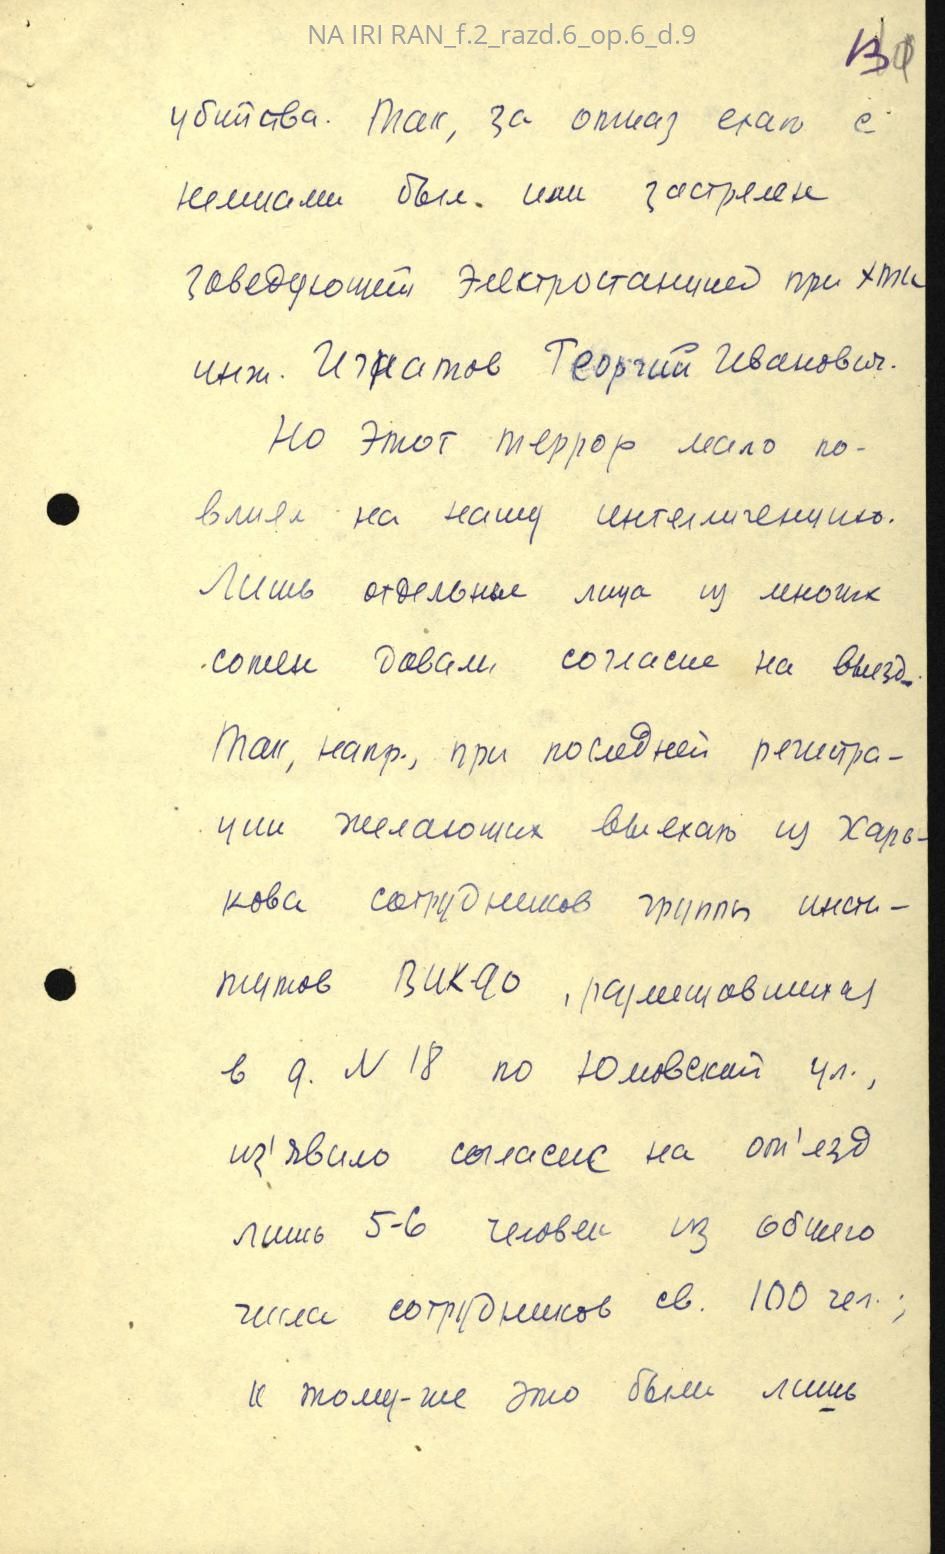 NA IRI RAN_f.2_razd.6_op.6_d.9
убийства. Так, за отказ ехать с
немцами был ими застрелен
заведующий электростанцией при ХТИ
инж. Игнатов Георгий Иванович.
Но этот террор мало по-
влиял на нашу интеллигенцию.
Лишь отдельные лица из многих
сотен давали согласие на выезд.
Так, напр., при последней регистра-
ции желающих выехать из Харь-
кова сотрудников группы инсти-
тутов ВИКДО, размещавшихся
в д. N 18 по Юмовской ул.,
из'явило согласие на от'езд
лишь 5-6 человек из общего
числа сотрудников св. 100 чел.;
к тому-же это были лишь